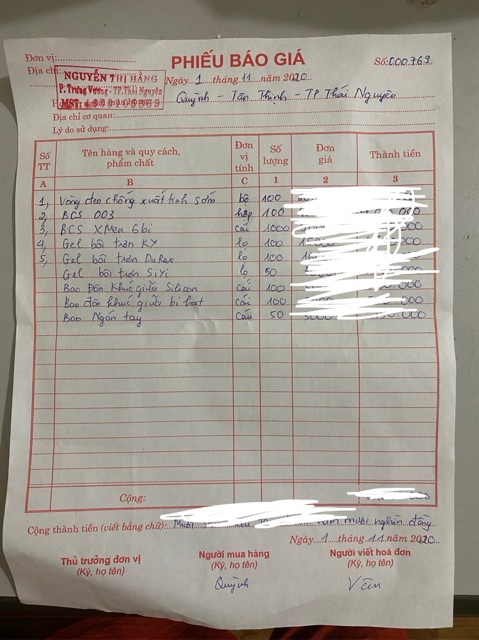 Đơn vị:
PHIẾU BÁO GIÁ
Số: 000769
Địa chỉ:
NGUYỄN THỊ HẰNG
P. Trưng Vương - TP. Thái Nguyên
MST:
Ngày 1 tháng 11 năm 2020
Quỳnh - Tân Thịnh - TP Thái Nguyên
Địa chỉ cơ quan:
Lý do sử dụng:
Số TT Tên hàng và quy cách, phẩm chất Đơn vị tính Số lượng Đơn giá Thành tiền
A B C 1 2 3
1, Vòng đeo chống xuất tinh sớm bộ 100
2, BCS 003 hộp 100 000
3, BCS XMen 6bi cái 1000
4, Gel bôi trơn KY lọ 100
5, Gel bôi trơn DuRex lọ 100
Gel bôi trơn SiYi lọ 50
Bao Đôn Khúc giữa Silicon cái 100 000
Bao đôn khúc giữa bi hạt cái 100 000
Bao Ngón tay cái 50 000
Cộng:
Cộng thành tiền (viết bằng chữ): Mười năm mươi nghìn đồng
Ngày 1 tháng 11 năm 2020
Thủ trưởng đơn vị Người mua hàng Người viết hoá đơn
(Ký, họ tên) (Ký, họ tên) (Ký, họ tên)
Quỳnh Vân